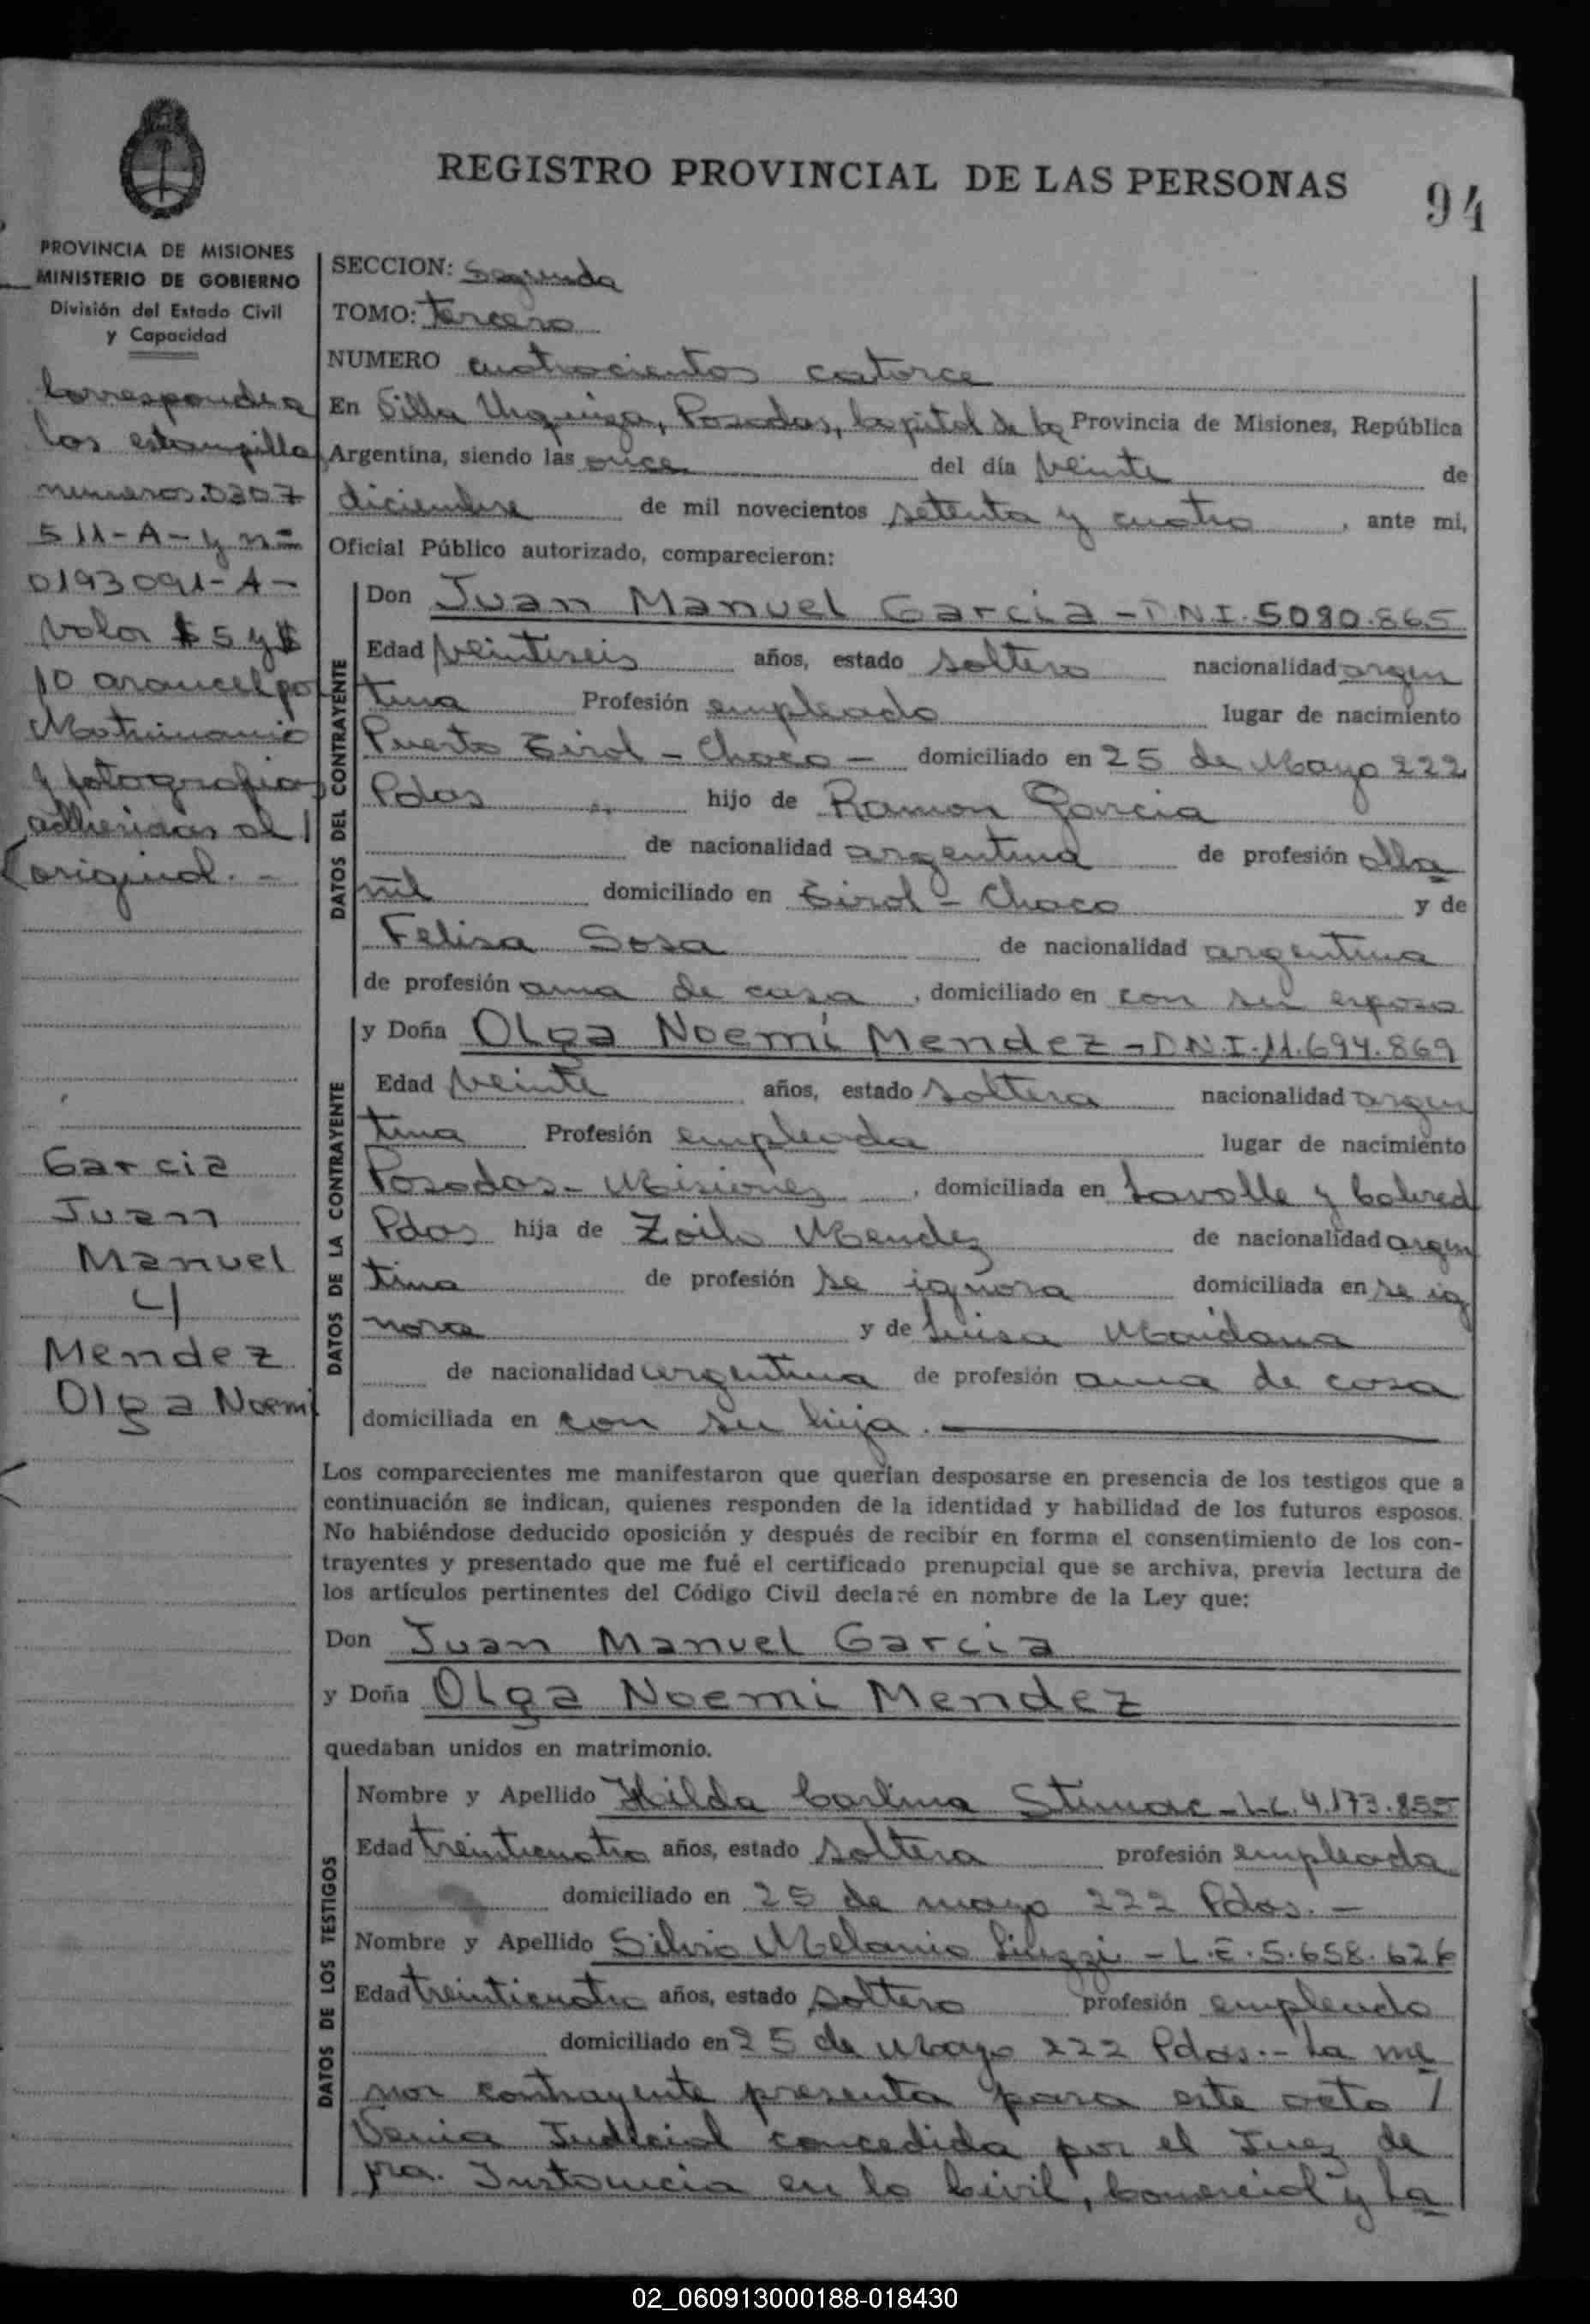 REGISTRO PROVINCIAL DE LAS PERSONAS
94
PROVINCIA DE MISIONES
MINISTERIO DE GOBIERNO
División del Estado Civil
y Capacidad
Corresponden a
las estampilla
numeros 0307
511-A- y nº
0193091-A-
Valor $5 y $
10 arancel po
Matrimonio
y fotografias
adheridas al /
original. -
Garcia
Juan
Manuel
y
Mendez
Olga Noemi
SECCION: Segunda
TOMO: tercero
NUMERO cuatrocientos catorce
En Villa Urquiza, Posadas, Capital de la Provincia de Misiones, República
Argentina, siendo las once del día veinte de
diciembre de mil novecientos setenta y cuatro, ante mi,
Oficial Público autorizado, comparecieron:
DATOS DEL CONTRAYENTE
Don Juan Manuel Garcia - D.N.I. 5080.865
Edad veintiseis años, estado soltero nacionalidad argen
tina Profesión empleado lugar de nacimiento
Puerto Tirol - Chaco - domiciliado en 25 de Mayo 222
Pdas hijo de Ramon Garcia
de nacionalidad argentina de profesión alba
nil domiciliado en Tirol - Chaco y de
Felisa Sosa de nacionalidad argentina
de profesión ama de casa, domiciliado en con su esposo
DATOS DE LA CONTRAYENTE
y Doña Olga Noemi Mendez - D.N.I. 11.694.869
Edad veinte años, estado soltera nacionalidad argen
tina Profesión empleada lugar de nacimiento
Posadas - Misiones, domiciliada en Lavalle y Cabred
Pdas hija de Zoilo Mendez de nacionalidad argen
tina de profesión se ignora domiciliada en se ig
nora y de Luisa Maidana
de nacionalidad argentina de profesión ama de casa
domiciliada en con su hija.
Los comparecientes me manifestaron que querían desposarse en presencia de los testigos que a
continuación se indican, quienes responden de la identidad y habilidad de los futuros esposos.
No habiéndose deducido oposición y después de recibir en forma el consentimiento de los con-
trayentes y presentado que me fué el certificado prenupcial que se archiva, previa lectura de
los artículos pertinentes del Código Civil declaré en nombre de la Ley que:
Don Juan Manuel Garcia
y Doña Olga Noemi Mendez
quedaban unidos en matrimonio.
DATOS DE LOS TESTIGOS
Nombre y Apellido Hilda Carlina - L.C. 4.173.855
Edad treinticuatro años, estado soltera profesión empleada
domiciliado en 25 de mayo 222 Pdas. -
Nombre y Apellido Silvio Melanio - L.E. 5.658.626
Edad treinticuatro años, estado soltero profesión empleado
domiciliado en 25 de Mayo 222 Pdas.- La me
nor contrayente presenta para este acto /
Venia Judicial concedida por el Juez de
pra. Instancia en lo Civil, Comercial y La
02_060913000188-018430